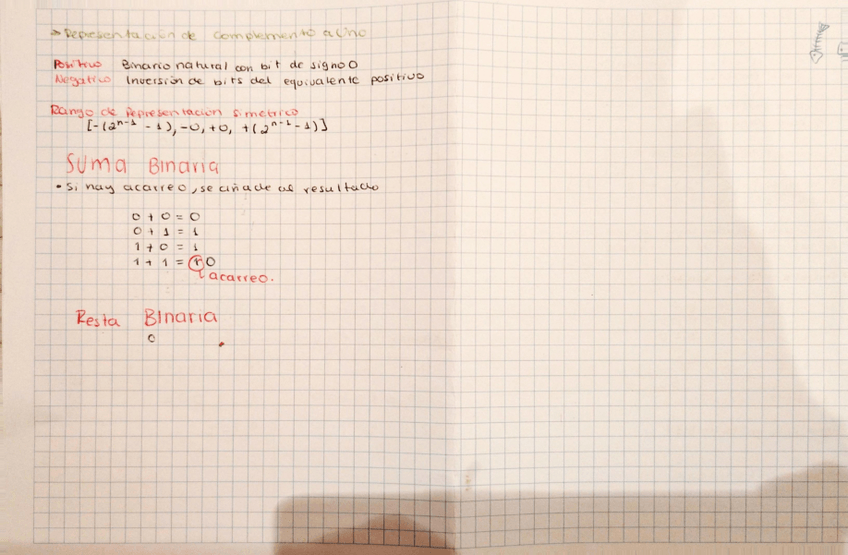 → Representación de complemento a Uno
Positivo Binario natural con bit de signo 0
Negativo Inversión de bits del equivalente positivo
Rango de representación simétrico
[-(2ⁿ⁻¹ - 1), -0, +0, +(2ⁿ⁻¹ - 1)]
Suma Binaria
• Si hay acarreo, se añade al resultado
0 + 0 = 0
0 + 1 = 1
1 + 0 = 1
1 + 1 = 10
acarreo.
Resta Binaria
0